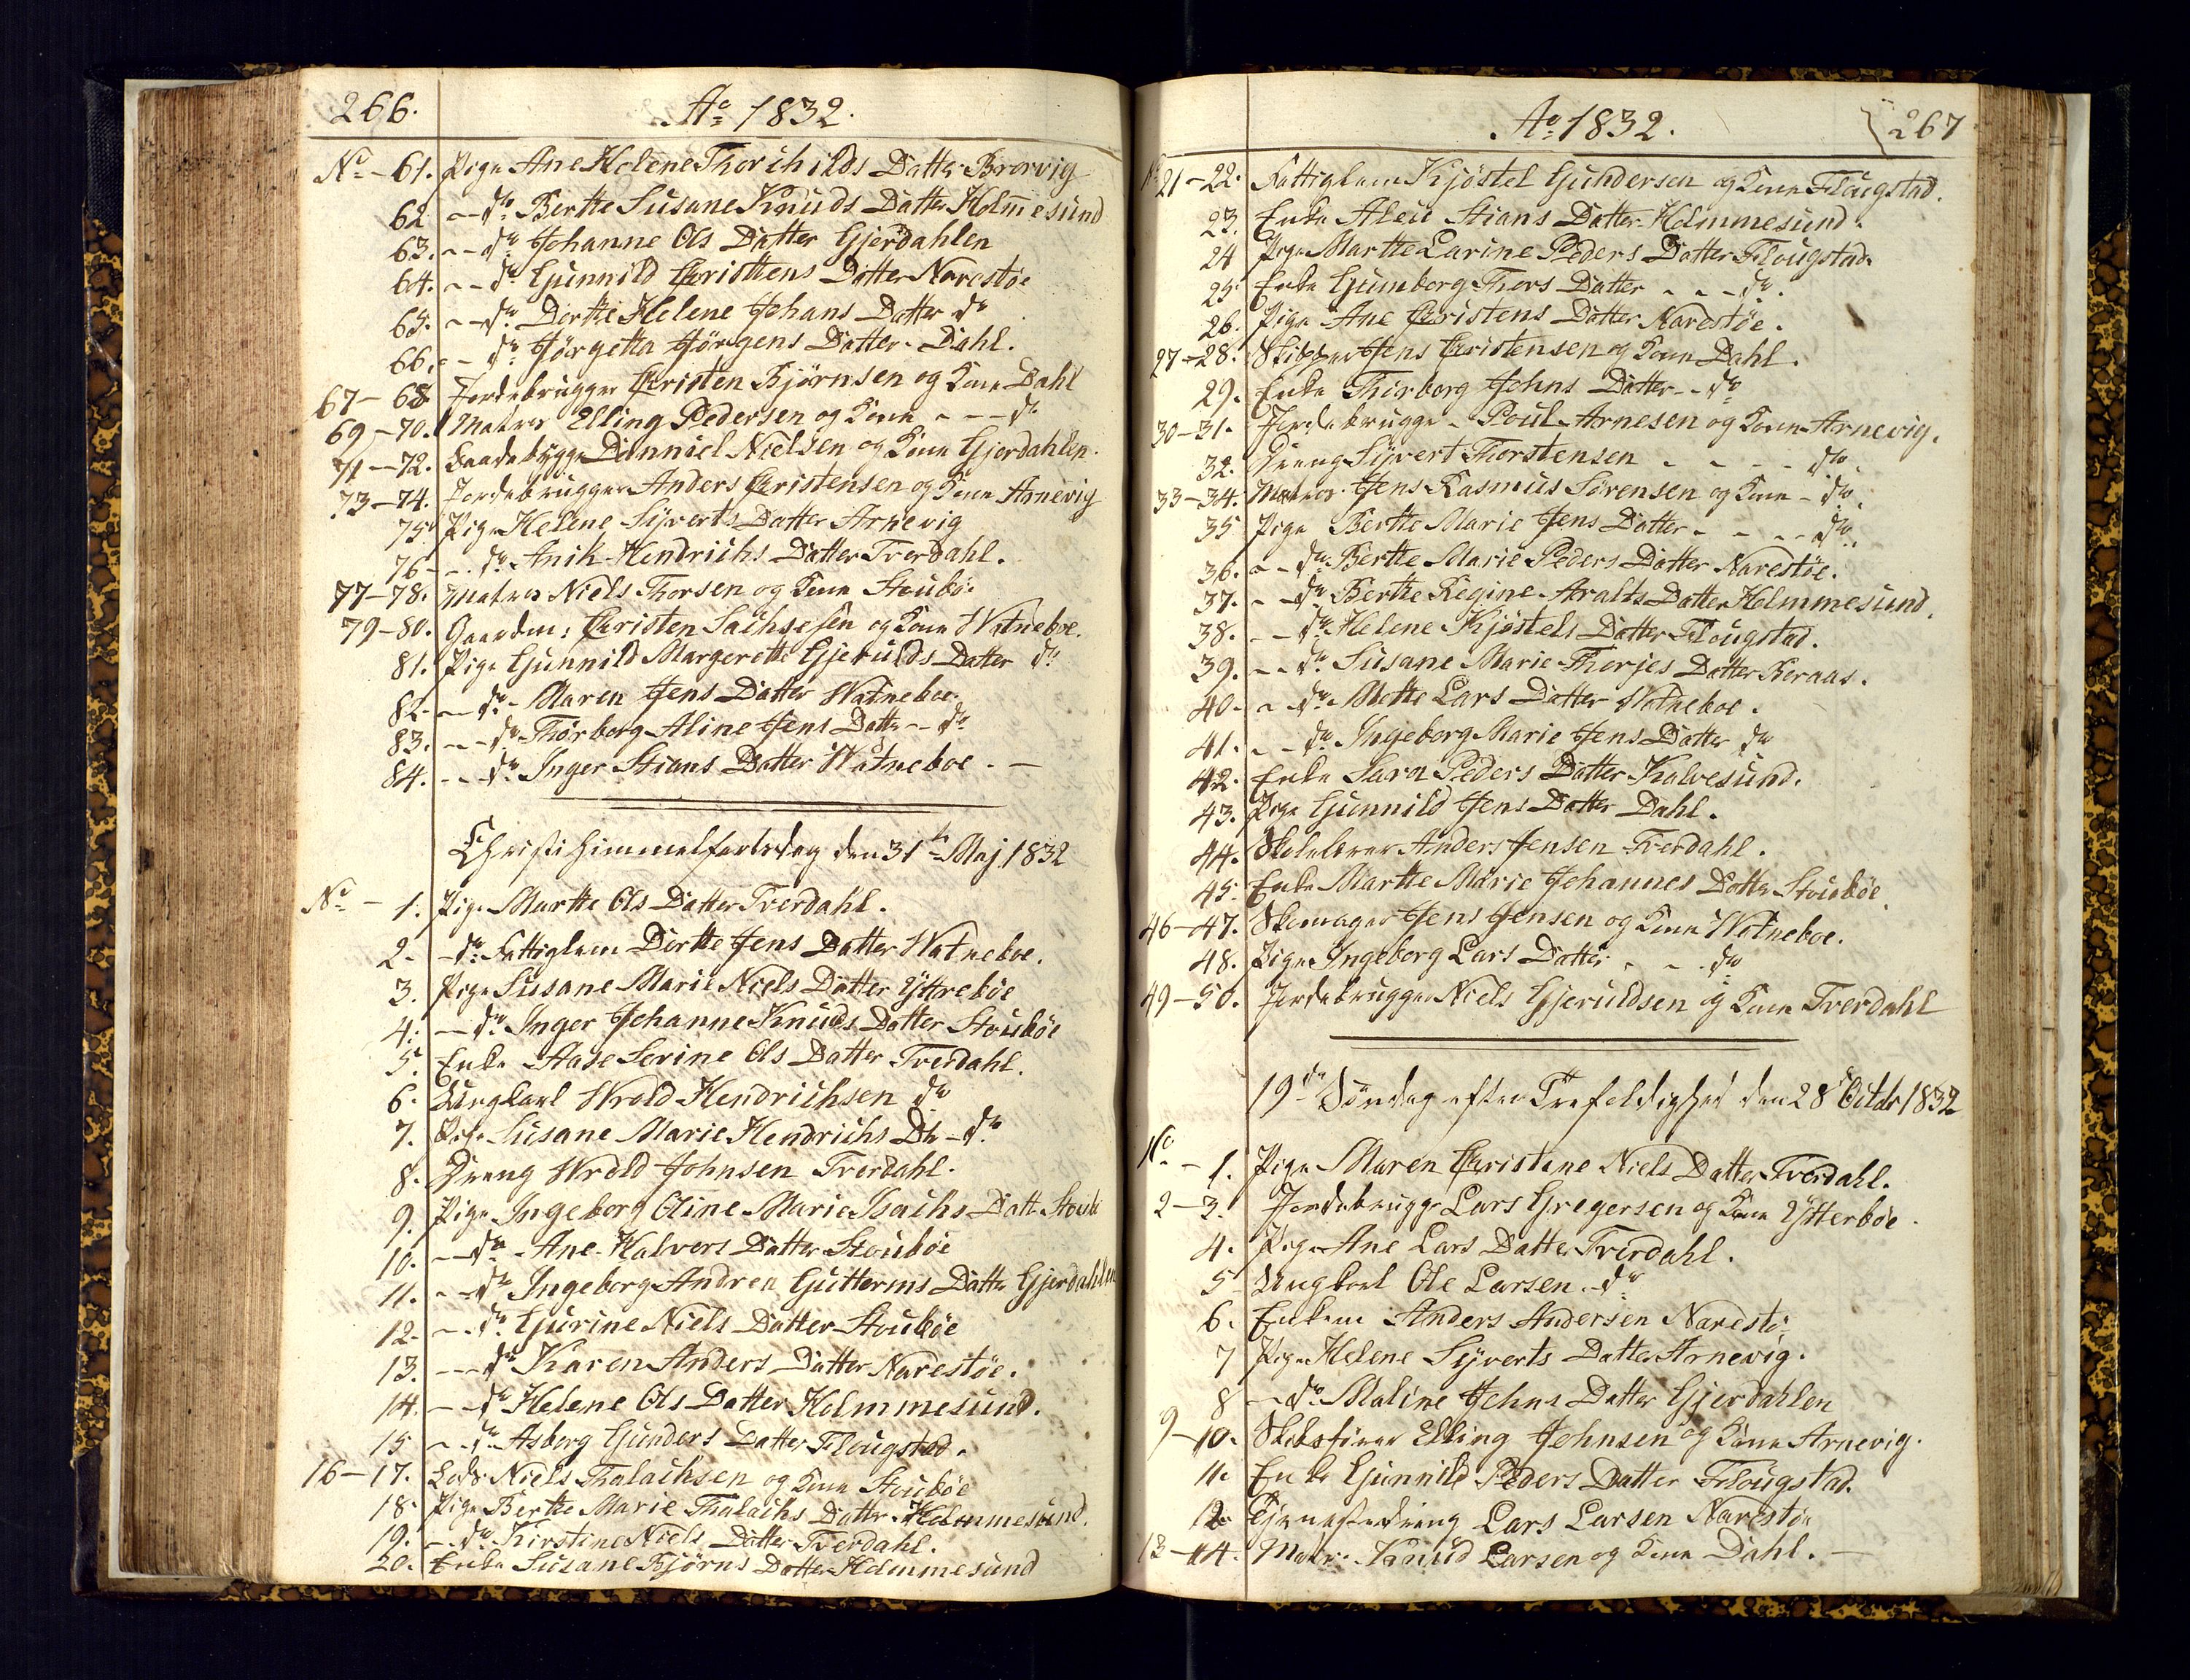 266.
Ao 1832.
No - 61. Pige Ane Helene Thorchilds Datter Brorvig
62 - do Berthe Susane Knuds Datter Holmesund
63. - do Johanne Ols Datter Gjerdahlen
64. - do Gunnild Christens Datter Narestöe
65. - do Dorthe Helene Johans Datter do
66. - do Jörgetta Jörgens Datter Dahl.
67-68 Jordebrugger Christen Björnsen og Kone Dahl
69-70. Matros Elling Pedersen og Kone - - - do
71-72. Baadebygger Danniel Nielsen og Kone Gjerdahlen.
73-74. Jordebrugger Anders Christensen og Kone Arnevig
75 Pige Helene Syverts Datter Arnevig
76 - do Anik Hendrichs Datter Tverdahl.
77-78. Matros Niels Thorsen og Kone Stoubö.
79-80. Gaardm: Christen Sachsesen og Kone Watneboe.
81. Pige Gunnild Margerethe Gjerulds Datter do
82 - do - Maren Jens Datter Watneboe.
83. - - do Thorborg Aline Jens Datter - do
84. - - do Inger Stians Datter Watneboe. -
Christi himmelfartsdag den 31te Maj 1832
No - 1. Pige Marthe Ols Datter Tverdahl.
2. - do Fattiglem Dorthe Jens Datter Watneboe.
3. Pige Susane Marie Niels Datter Yttreböe
4. - do Inger Johanne Knuds Datter Stouböe
5. Enke Aase Serine Ols Datter Tverdahl.
6. Ungkarl Wrold Hendrichsen do
7. Pige Susane Marie Hendrichs Dtr - do
8. Dreng Wrold Johnsen Tverdahl.
9. Pige Ingeborg Oline Marie Isachs Datt. Stoubö
10. - do - Ane Halvors Datter Stouböe
11. - do Ingeborg Andrea Gutterms Datter Gjerdahlen
12. - do Gurine Niels Datter Stouböe
13. - - do Karen Anders Datter Narestöe.
14. - - do Helene Ols Datter Holmmesund.
15 - - do Asborg Gunders Datter Flougstad.
16-17. Lods Niels Thalachsen og Kone Stouböe
18. Pige Berthe Marie Thalachs Datter Holmmesund.
19. - do Kirstine Niels Datter Tverdahl.
20. Enke Susane Bjørns Datter Holmmesund
Ao 1832.
267
No 21-22. Fattiglem Kjöstel Gundersen og Kone Flougstad.
23. Enke Aleu Stians Datter Holmmesund.
24 Pige Marthe Larine Peders Datter Flougstad.
25 Enke Gunborg Thors Datter - - - do.
26. Pige Ane Christens Datter Narestöe.
27-28. Skipper Jens Christensen og Kone Dahl.
29. Enke Thorborg Johns Datter - - do
30-31. Jordebrugger Poul Arnesen og Kone Arnevig.
32. Dreng Syvert Thorstensen - - - - do.
33-34. Matros Jens Rasmus Sörensen og Kone - do.
35 Pige Berthe Marie Jens Datter - - - - do.
36. - - do Berthe Marie Peders Datter Narestöe.
37. - - do Berthe Regine Aralts Datter Holmmesund.
38. - - do Helene Kjöstels Datter Flougstad.
39. - - do Susane Marie Thorjes Datter Beraas.
40. - do Mette Lars Datter Watneboe.
41. - - do Ingeborg Marie Jens Datter do
42. Enke Sara Peders Datter Kalvesund.
43. Pige Gunnild Jens Datter Dahl.
44. Skolelærer Anders Jensen Tverdahl.
45. Enke Marthe Marie Johannes Datter Stouböe.
46-47. Skomager Jens Jensen og Kone Watneboe.
48. Pige Ingeborg Lars Datter - - - do
49-50. Jordebrugger Niels Gjeruldsen og Kone Tverdahl
19de Söndag efter Trefoldighed den 28de Octbr 1832
No - 1. Pige Maren Christene Niels Datter Tverdahl.
2-3. Jordebrugger Lars Gregersen og Kone Ytterböe.
4. Pige Ane Lars Datter Tverdahl.
5 Ungkarl Ole Larsen - do
6. Enkem Anders Andersen Narestö
7 Pige Helene Syverts Datter Arnevig.
8 - do Maline Johns Datter Gjerdahlen
9-10. Skibsförer Elling Johnsen og Kone Arnevig.
11. Enke Gunnild Peders Datter Flougstad.
12. Tjenestedreng Lars Larsen Narestöe
13-14. Matr. Knud Larsen og Kone Dahl. -